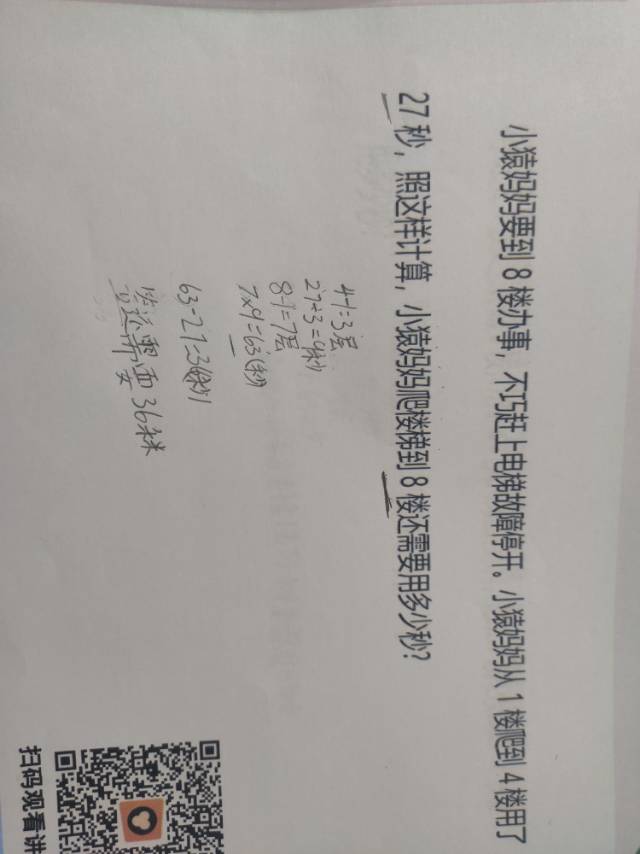 小猿妈妈要到 8 楼办事，不巧赶上电梯故障停开。小猿妈妈从 1 楼爬到 4 楼用了
27 秒，照这样计算，小猿妈妈爬楼梯到 8 楼还需要用多少秒？
4-1=3层
27÷3=9秒
8-1=7层
7×9=63(秒)
63-27=36(秒)
答:还需要 36
扫码观看讲